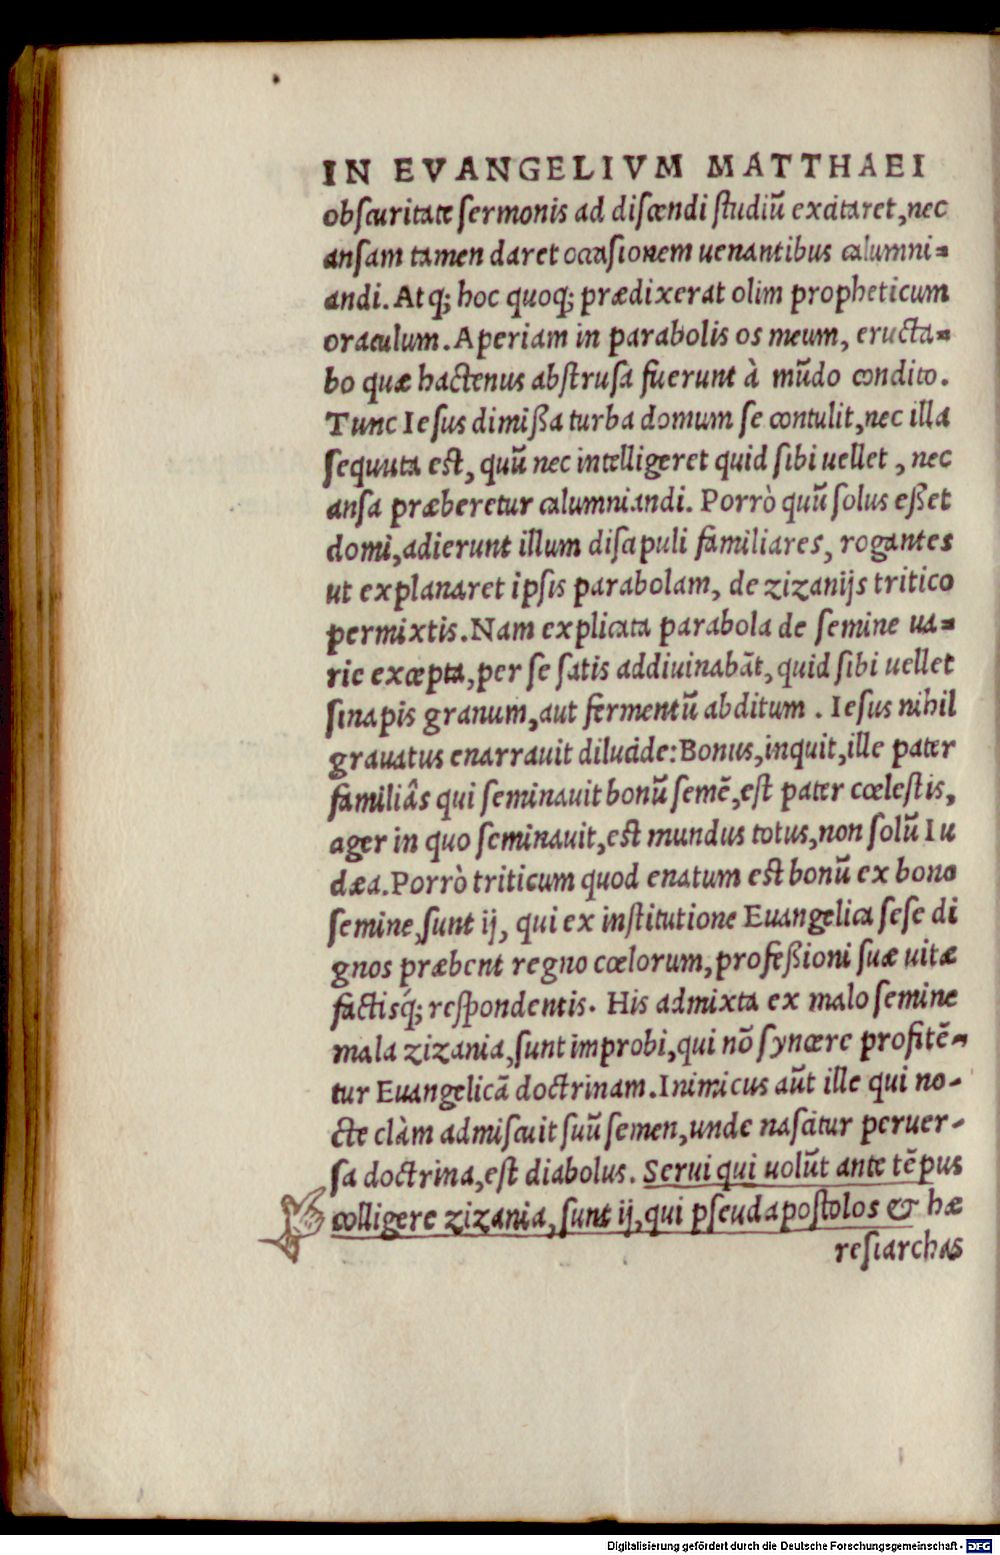 IN EVANGELIVM MATTHAEI
obscuritate sermonis ad discendi studiū excitaret, nec
ansam tamen daret occasionem uenantibus calumni=
andi. Atq; hoc quoq; prædixerat olim propheticum
oraculum. Aperiam in parabolis os meum, eructa=
bo quæ hactenus abstrusa fuerunt à mūdo condito.
Tunc Iesus dimißa turba domum se contulit, nec illa
sequuta est, quū nec intelligeret quid sibi uellet, nec
ansa præberetur calumniandi. Porrò quū solus eßet
domi, adierunt illum discipuli familiares, rogantes
ut explanaret ipsis parabolam, de zizanijs tritico
permixtis. Nam explicata parabola de semine ua=
rie excepta, per se satis addiuinabāt, quid sibi uellet
sinapis granum, aut fermentū abditum. Iesus nihil
grauatus enarrauit dilucide: Bonus, inquit, ille pater
familiâs qui seminauit bonū semē, est pater cœlestis,
ager in quo seminauit, est mundus totus, non solū Iu
dæa. Porrò triticum quod enatum est bonū ex bono
semine, sunt ij, qui ex institutione Euangelica sese di
gnos præbent regno cœlorum, profeßioni suæ uitæ
factisq́; respondentis. His admixta ex malo semine
mala zizania, sunt improbi, qui nō syncere profitē-
tur Euangelicā doctrinam. Inimicus aūt ille qui no-
cte clàm admiscuit suū semen, unde nascitur peruer-
sa doctrina, est diabolus. Serui qui uolūt ante tēpus
colligere zizania, sunt ij, qui pseudapostolos & hæ
resiarchas
Digitalisierung gefördert durch die Deutsche Forschungsgemeinschaft - DFG